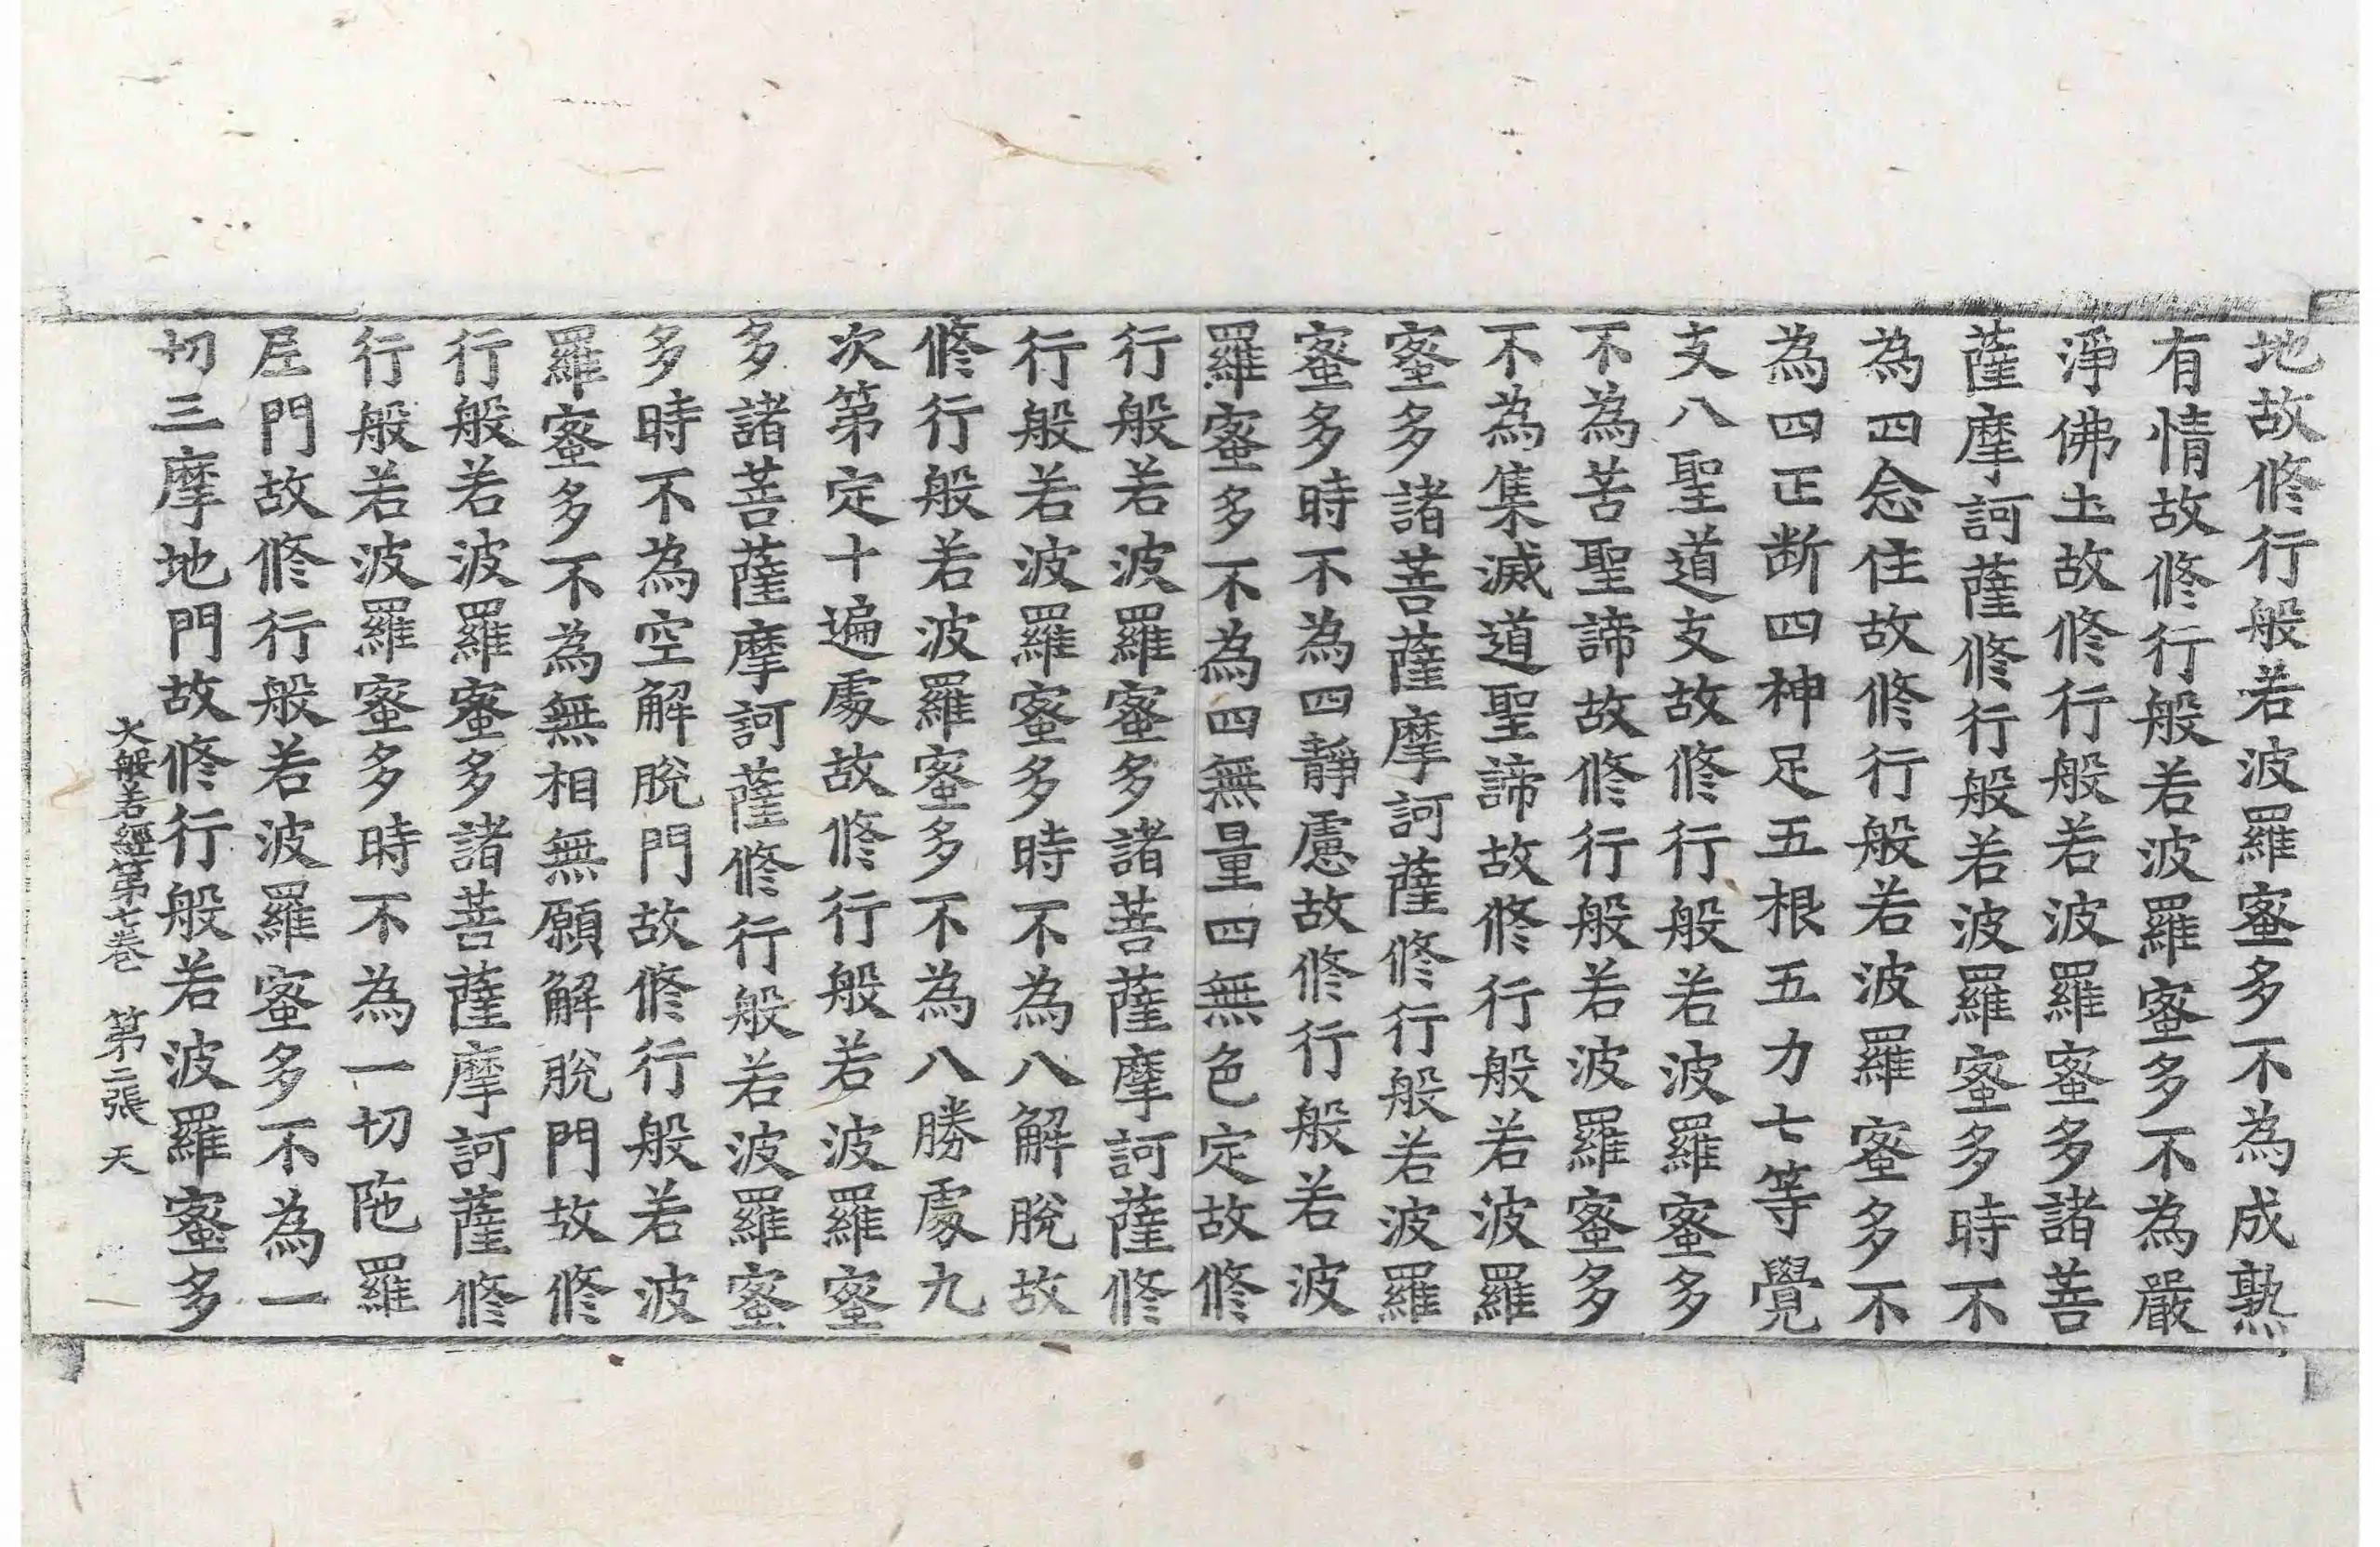 地故修行般若波羅蜜多不為成熟
有情故修行般若波羅蜜多不為嚴
淨佛土故修行般若波羅蜜多諸菩
薩摩訶薩修行般若波羅蜜多時不
為四念住故修行般若波羅蜜多不
為四正断四神足五根五力七等覺
支八聖道支故修行般若波羅蜜多
不為苦聖諦故修行般若波羅蜜多
不為集滅道聖諦故修行般若波羅
蜜多諸菩薩摩訶薩修行般若波羅
蜜多時不為四靜慮故修行般若波
羅蜜多不為四無量四無色定故修
行般若波羅蜜多諸菩薩摩訶薩修
行般若波羅蜜多時不為八解脫故
修行般若波羅蜜多不為八勝處九
次第定十遍處故修行般若波羅蜜
多諸菩薩摩訶薩修行般若波羅蜜
多時不為空解脫門故修行般若波
羅蜜多不為無相無願解脫門故修
行般若波羅蜜多諸菩薩摩訶薩修
行般若波羅蜜多時不為一切陁羅
尼門故修行般若波羅蜜多不為一
切三摩地門故修行般若波羅蜜多
大般若經第七卷 第二張 天